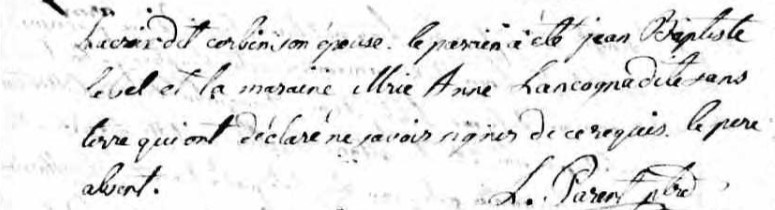 Lacroix dit corbin son épouse. le parein a été jean Baptiste
lebel et la maraine Mrie Anne Lancognadite sans
terre qui ont déclaré ne savoir signer de ce requis. le pere
absent.
L. Parent ptre